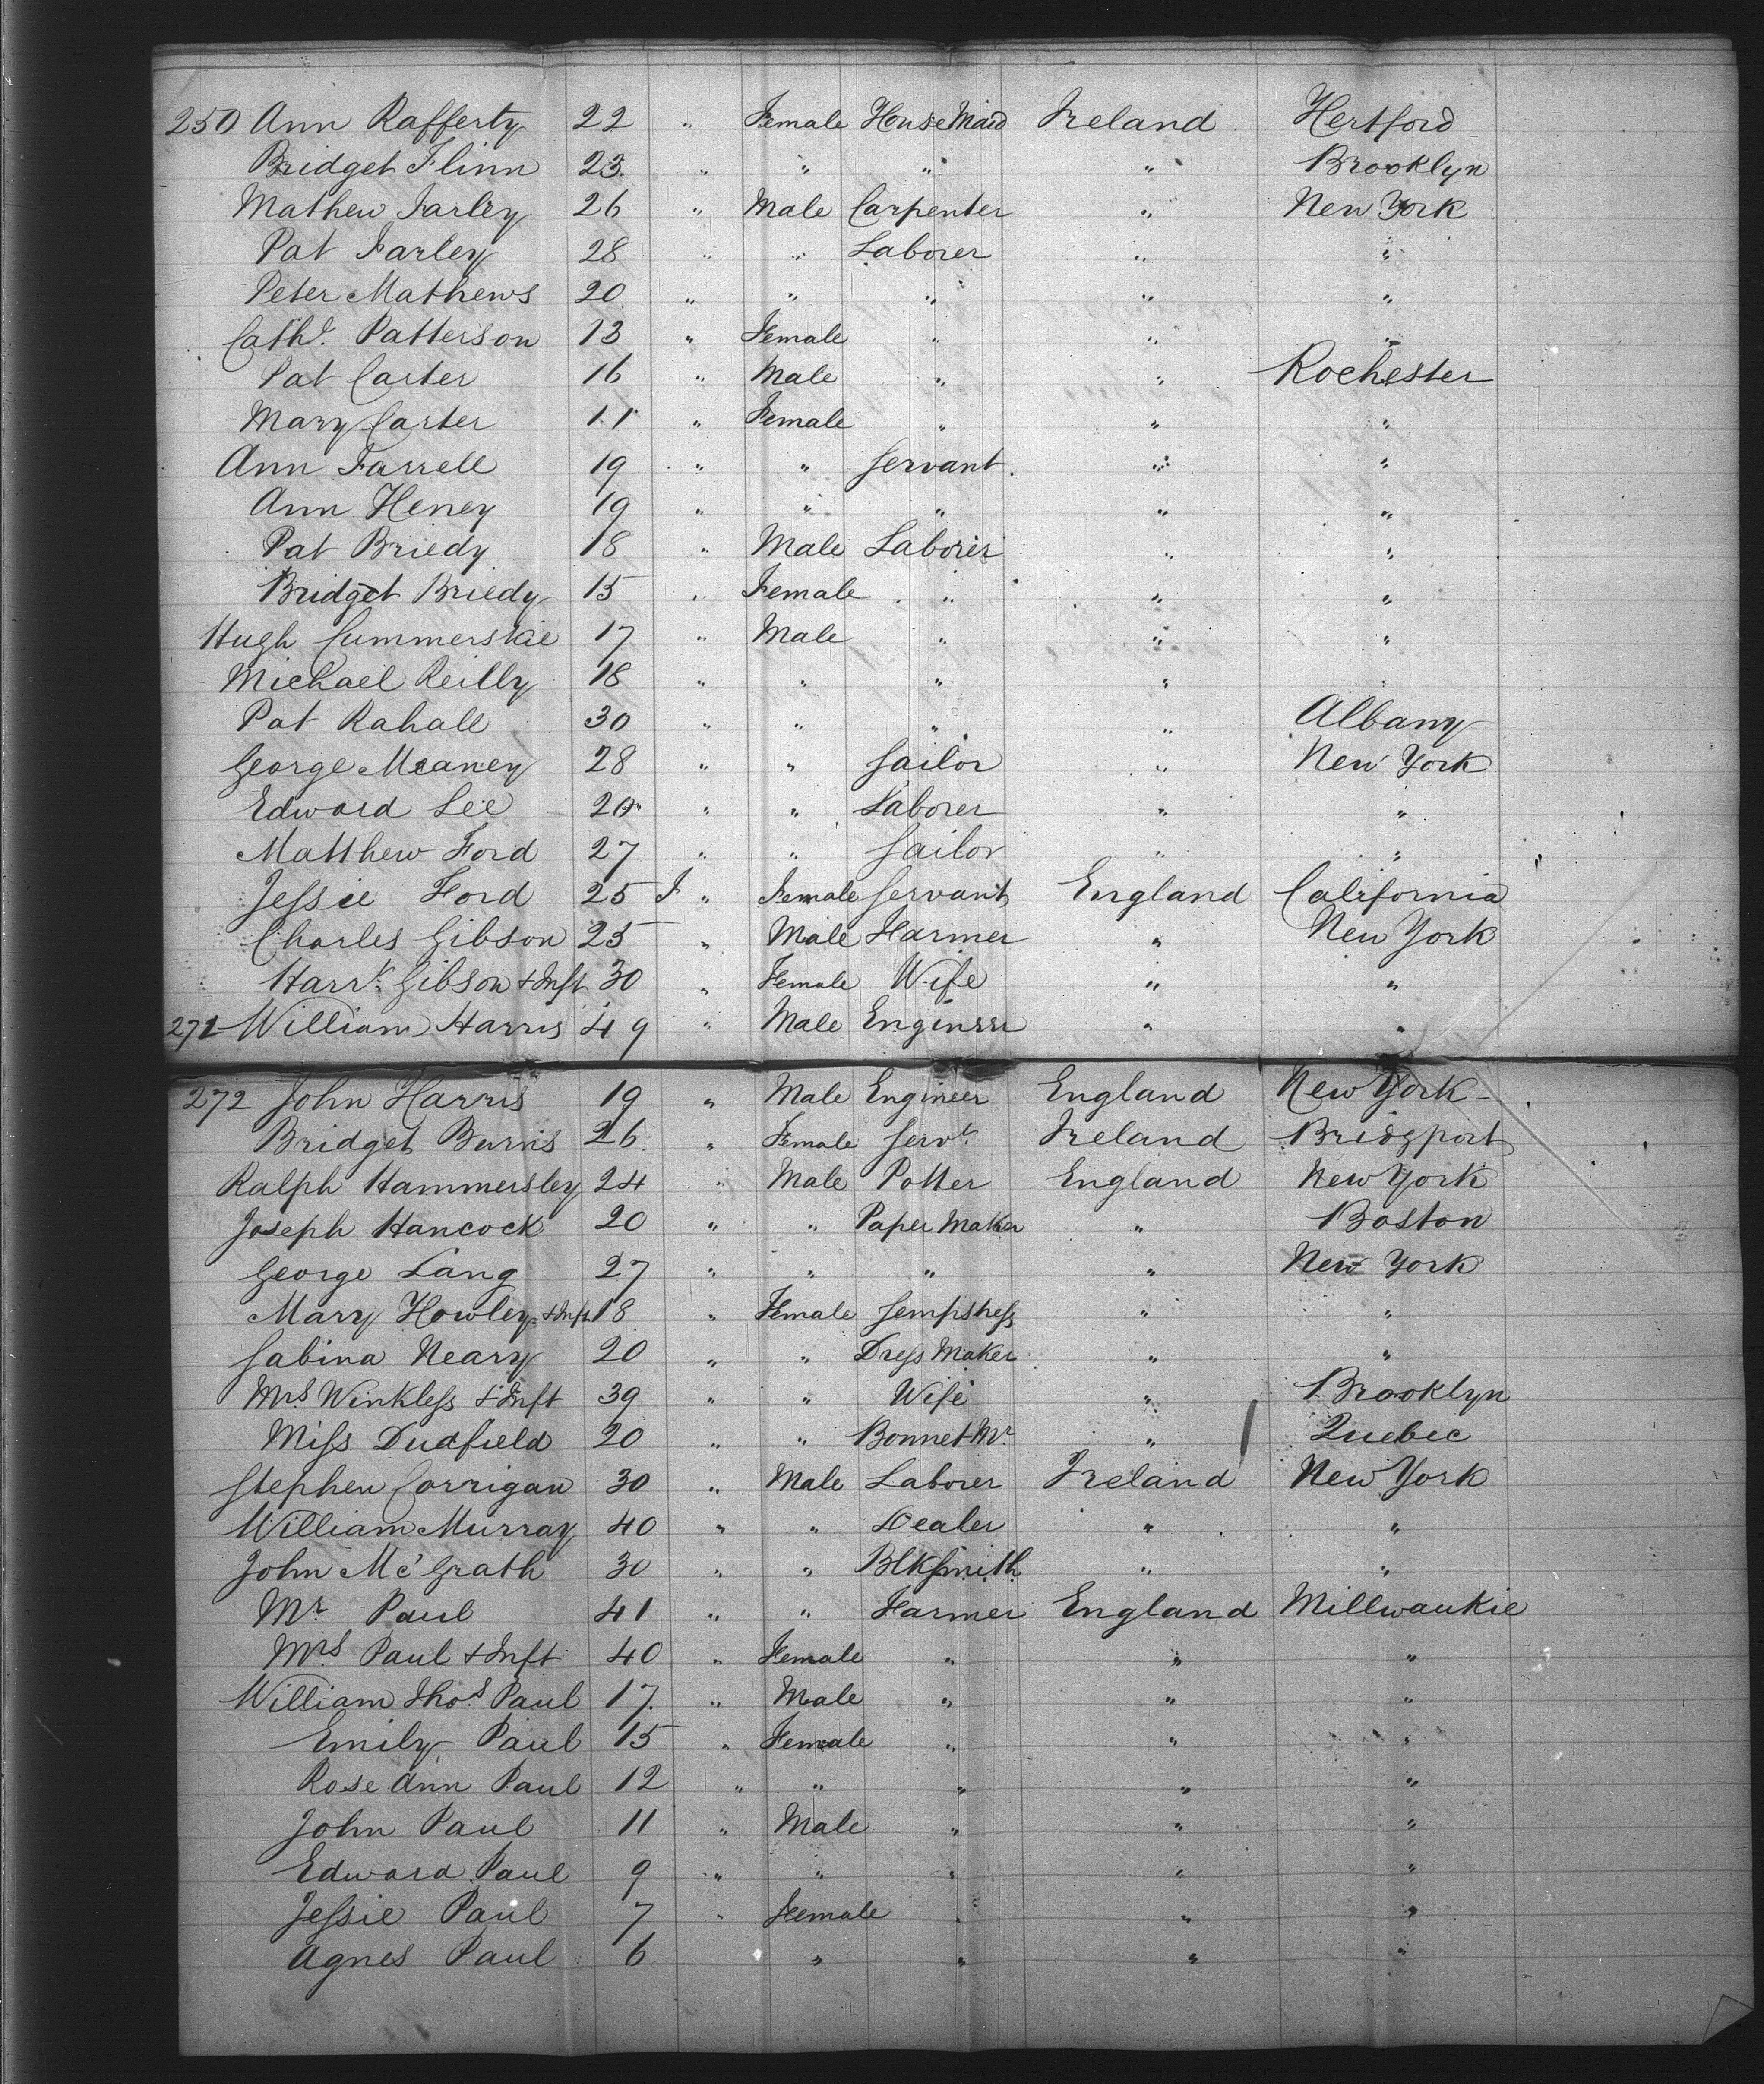 250 Ann Rafferty 22 " Female House Maid Ireland Hertford
Bridget Flinn 23 " " " " Brooklyn
Mathew Farley 26 " Male Carpenter " New York
Pat Farley 28 " " Laborer " "
Peter Mathews 20 " " " " "
Cathe. Patterson 13 " Female " " "
Pat Carter 16 " Male " " Rochester
Mary Carter 11 " Female " " "
Ann Farrell 19 " " Servant " "
Ann Heney 19 " " " " "
Pat Briedy 18 " Male Laborer " "
Bridget Briedy 15 " Female " " "
Hugh Cummerskie 17 " Male " " "
Michael Reilly 18 " " " " "
Pat Rahall 30 " " " " Albany
George Meaney 28 " " Sailor " New York
Edward Lee 20 " " Laborer " "
Matthew Ford 27 " " Sailor " "
Jessie Ford 25 " Female Servant England California
Charles Gibson 25 " Male Farmer " New York
Harrt. Gibson + Inft 30 " Female Wife " "
271 William Harris 49 " Male Engineer " "
272 John Harris 19 " Male Engineer England New York
Bridget Burns 26 " Female Servt. Ireland Bridgport
Ralph Hammersley 24 " Male Potter England New York
Joseph Hancock 20 " " Paper Maker " Boston
George Lang 27 " " " " New York
Mary Howley + Inft 18 " Female Sempstress " "
Sabina Neary 20 " " Dress Maker " "
Mrs Winkless + Inft 39 " " Wife " Brooklyn
Miss Dudfield 20 " " Bonnet Mr. " Quebec
Stephen Corrigan 30 " Male Laborer Ireland New York
William Murray 40 " " Dealer " "
John Mc'Grath 30 " " Blksmith " "
Mr Paul 41 " " Farmer England Millwaukie
Mrs Paul + Inft 40 " Female " " "
William Thos. Paul 17 " Male " " "
Emily Paul 15 " Female " " "
Rose Ann Paul 12 " " " " "
John Paul 11 " Male " " "
Edward Paul 9 " " " " "
Jessie Paul 7 " Female " " "
Agnes Paul 6 " " " "